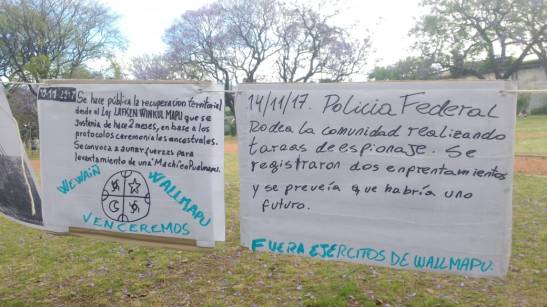 13.11.2017
Se hace pública la recuperacion territorial
desde el Lof LAFKEN WINKUL MAPU que se
sostenia de hace 2 meses, en base a los
protocolos ceremoniales ancestrales.
Se convoca a aunar fuerzas para
levantamiento de una Machi en Puelmapu.
WEWAIN
WALLMAPU
VENCEREMOS
14/11/17. Policia Federal
Rodea la comunidad realizando
tareas de espionaje. Se
registraron dos enfrentamientos
y se preveía que habría uno
futuro.
FUERA EJÉRCITOS DE WALLMAPU.